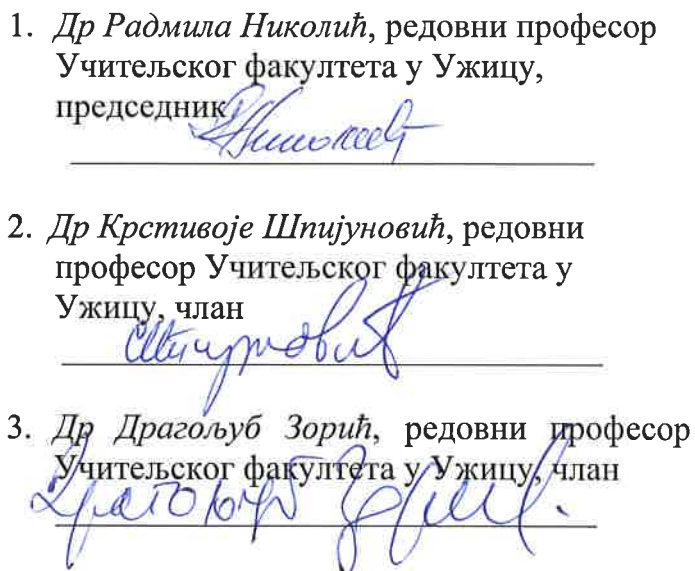 1. Др Радмила Николић, редовни професор
Учитељског факултета у Ужицу,
председник
2. Др Крстивоје Шпијуновић, редовни
професор Учитељског факултета у
Ужицу, члан
3. Др Драгољуб Зорић, редовни професор
Учитељског факултета у Ужицу, члан
Драгољуб Зорић